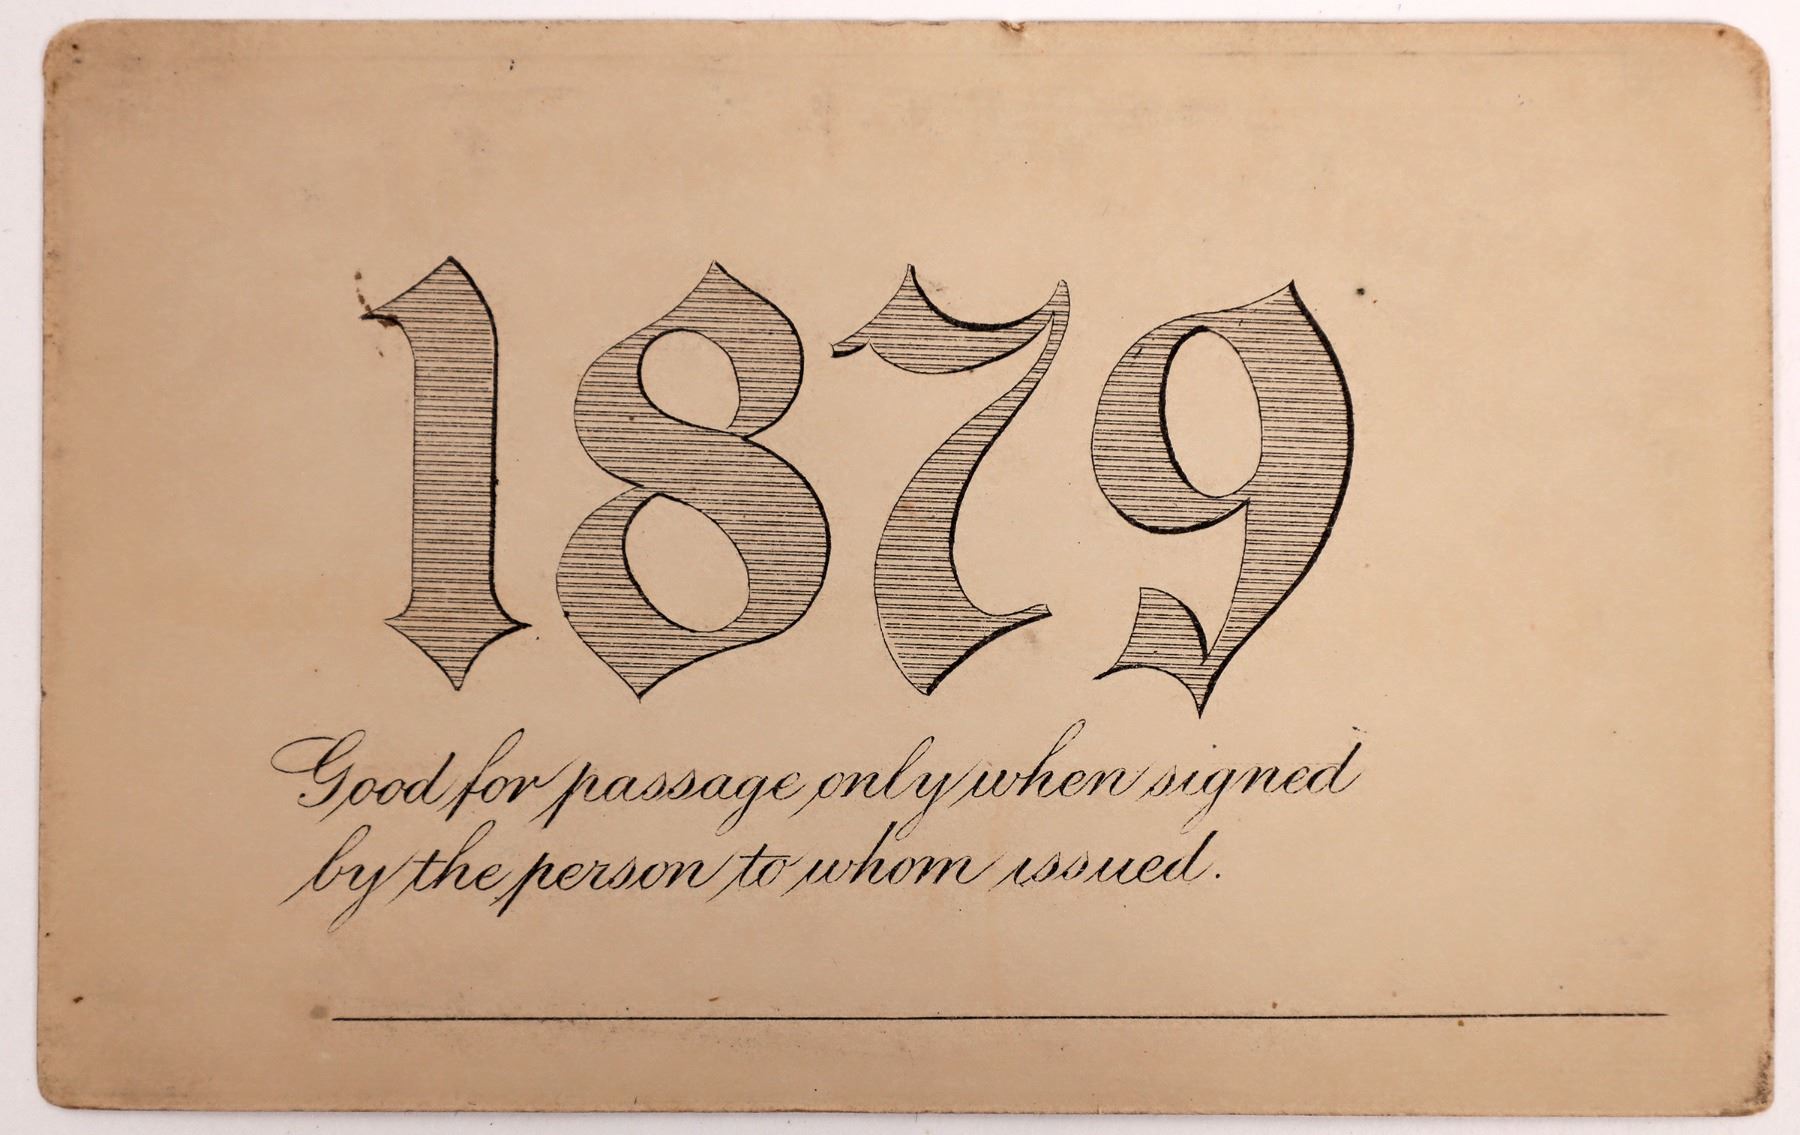 1879
Good for passage only when signed
by the person to whom issued.